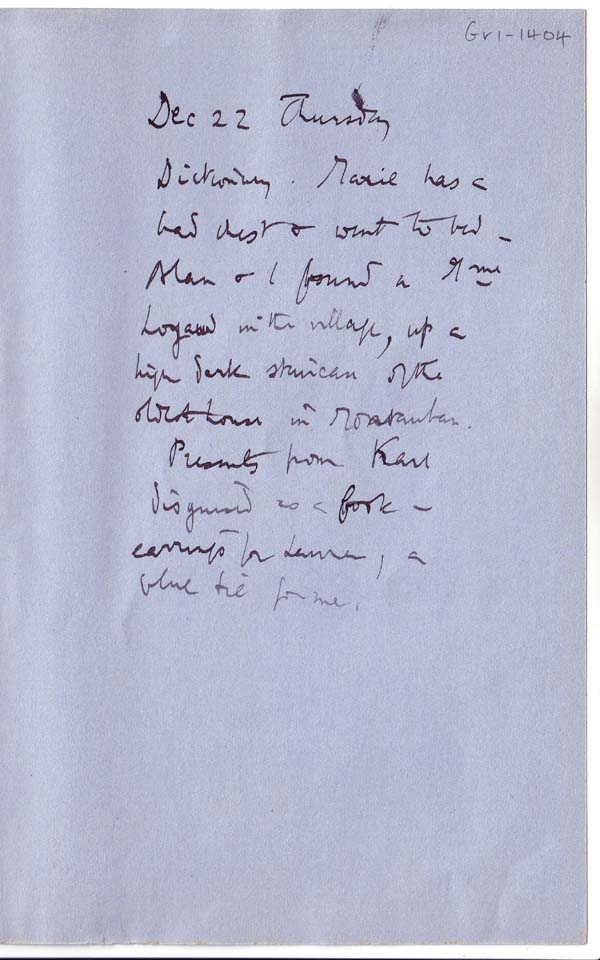 Gv1-1404
Dec 22 Thursday
Dictionary. Marie has a
bad chest & went to bed –
Alan & I found a Mme
in the village, up a
high dark staircase of the
oldest house in Montauban.
Presents from Karl
disguised as a book –
earrings for Laura, a
blue tie for me.